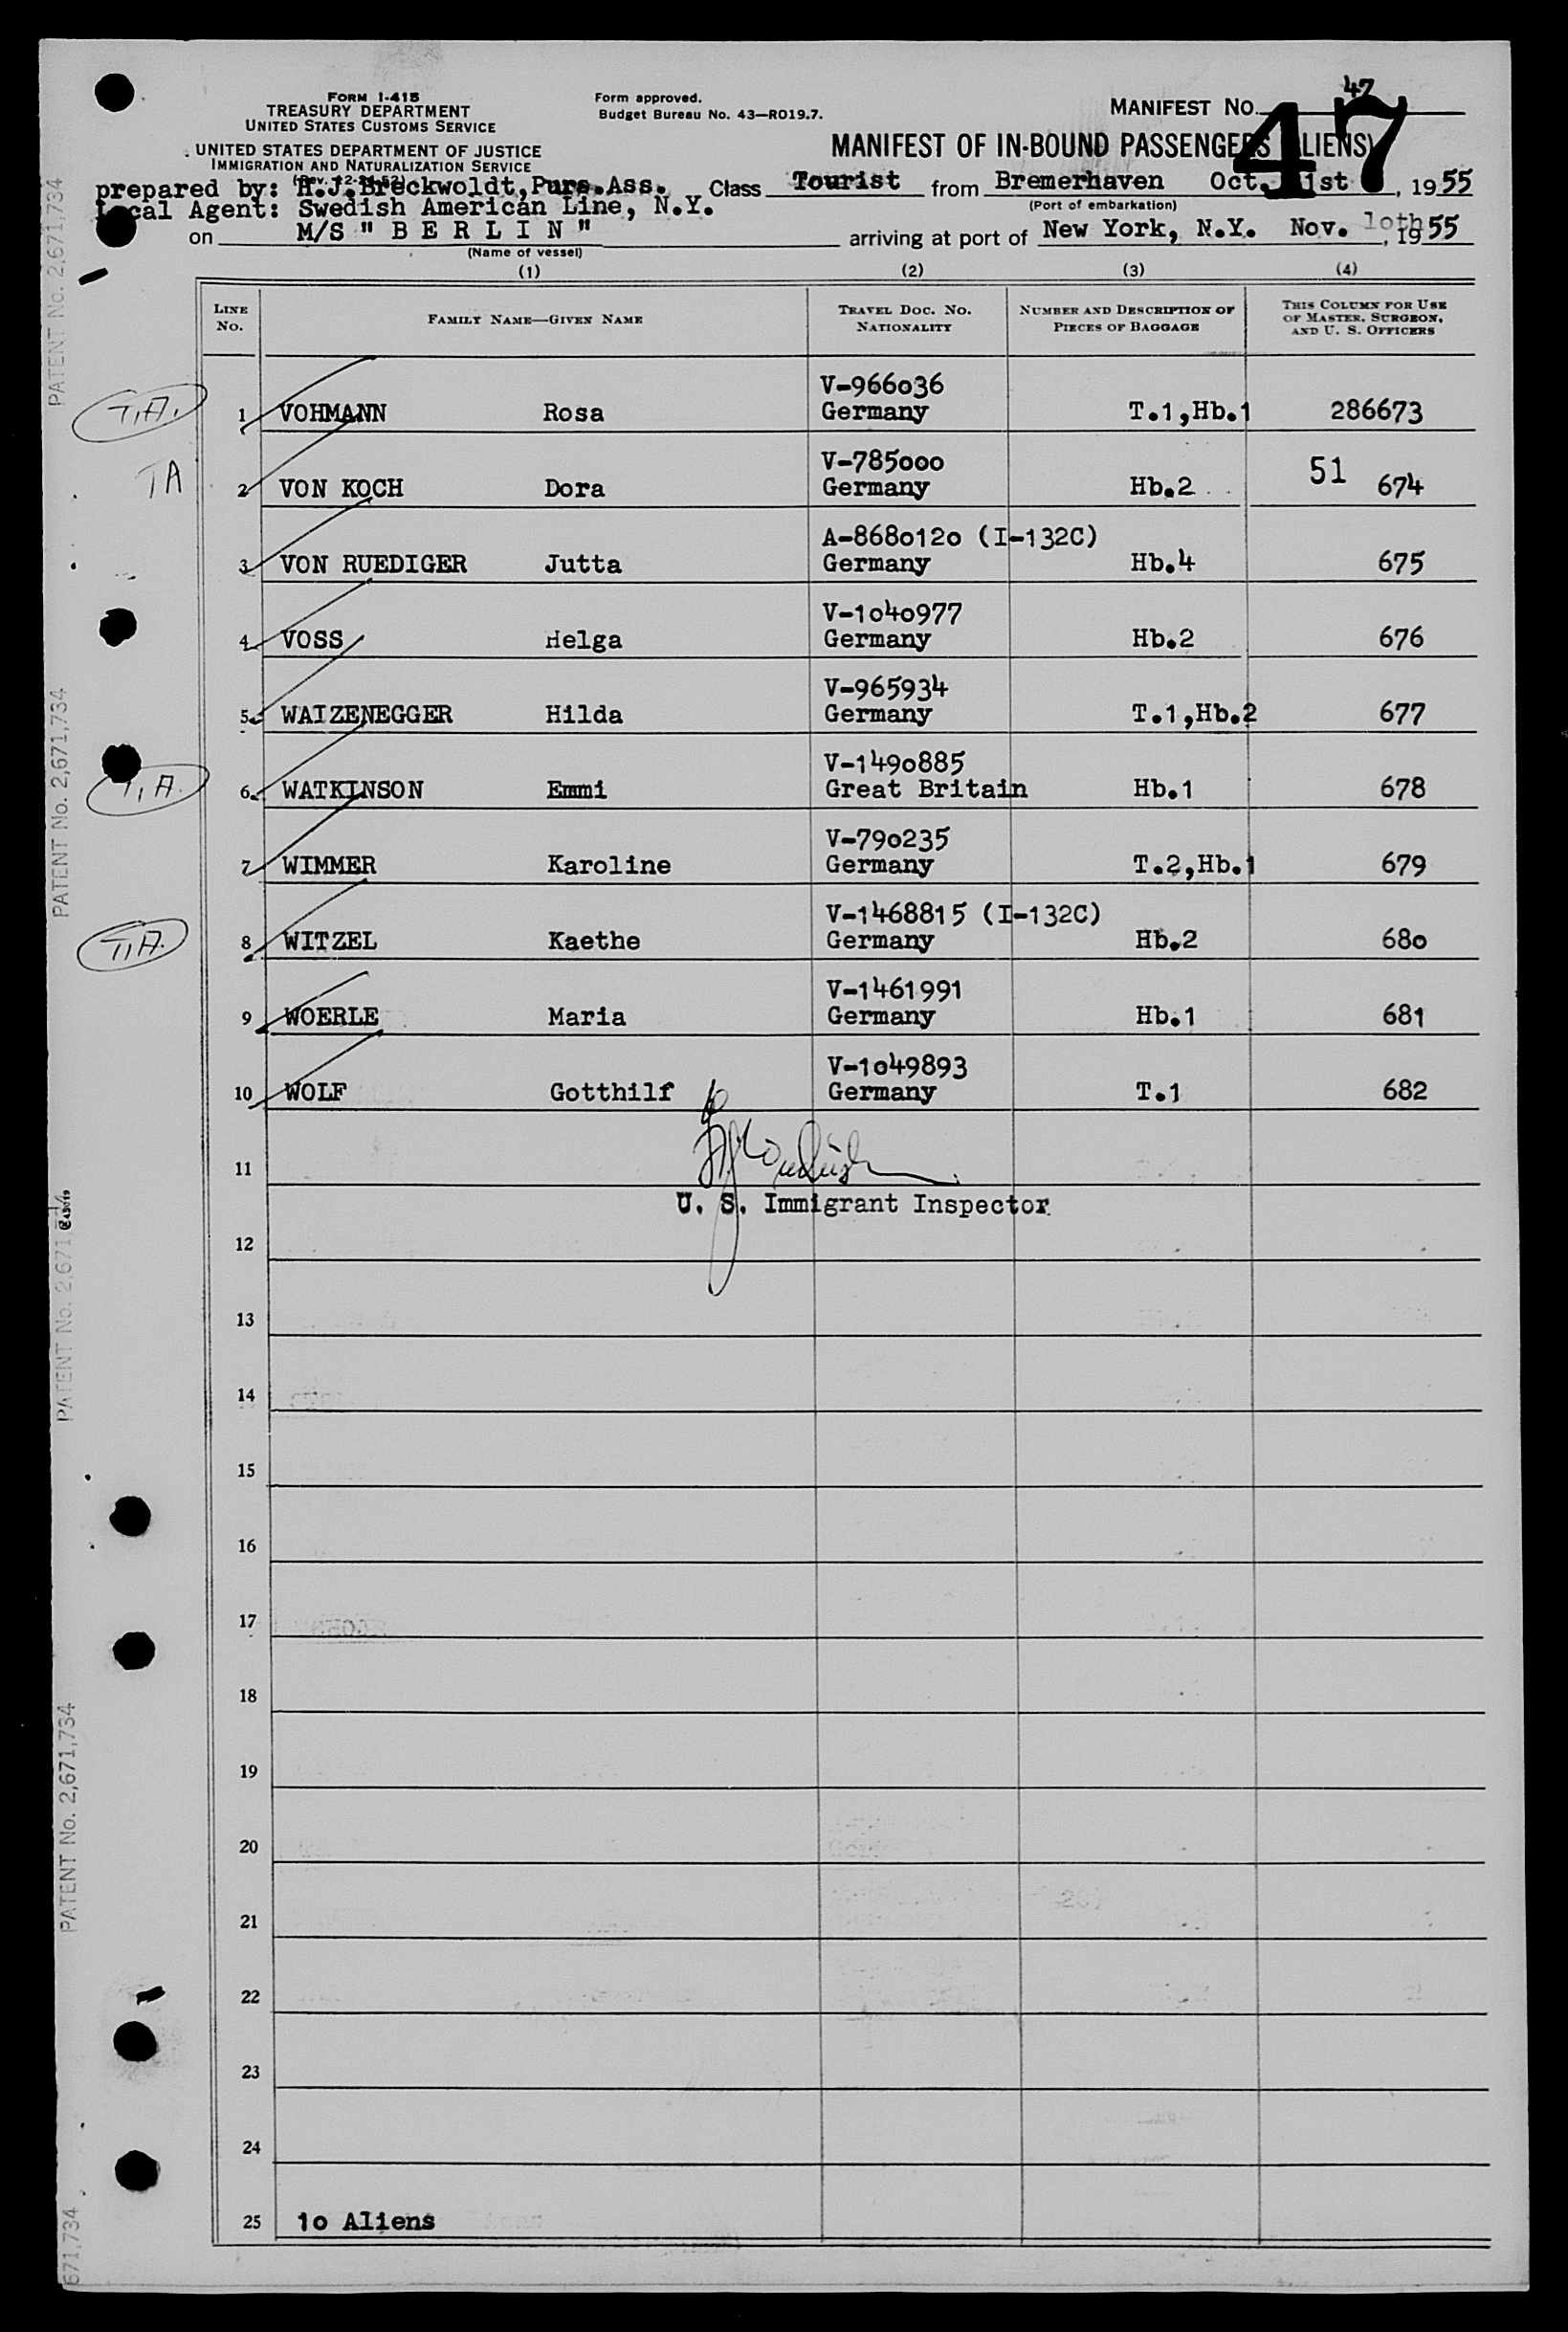 FORM I-418
TREASURY DEPARTMENT
UNITED STATES CUSTOMS SERVICE
UNITED STATES DEPARTMENT OF JUSTICE
IMMIGRATION AND NATURALIZATION SERVICE
Form approved.
Budget Bureau No. 43—R019.7.
MANIFEST NO. 47
47
MANIFEST OF IN-BOUND PASSENGERS (ALIENS)
prepared by: H.J.Breckwoldt,Purs.Ass. Class Tourist from Bremerhaven Oct. 1st, 1955
(Port of embarkation)
Local Agent: Swedish American Line, N.Y.
on M/S " B E R L I N " arriving at port of New York, N.Y. Nov. 10th, 1955
(Name of vessel)
(1) (2) (3) (4)
LINE NO. FAMILY NAME—GIVEN NAME TRAVEL DOC. NO. NATIONALITY NUMBER AND DESCRIPTION OF PIECES OF BAGGAGE THIS COLUMN FOR USE OF MASTER, SURGEON, AND U. S. OFFICERS
V-966036
T.A. 1 VOHMANN Rosa Germany T.1,Hb.1 286673
V-785000
TA 2 VON KOCH Dora Germany Hb.2 51 674
A-8680120 (I-132C)
3 VON RUEDIGER Jutta Germany Hb.4 675
V-1040977
4 VOSS Helga Germany Hb.2 676
V-965934
5 WAIZENEGGER Hilda Germany T.1,Hb.2 677
V-1490885
T.A. 6 WATKINSON Emmi Great Britain Hb.1 678
V-790235
7 WIMMER Karoline Germany T.2,Hb.1 679
V-1468815 (I-132C)
T.A. 8 WITZEL Kaethe Germany Hb.2 680
V-1461991
9 WOERLE Maria Germany Hb.1 681
V-1049893
10 WOLF Gotthilf Germany T.1 682
11
U. S. Immigrant Inspector
12
13
14
15
16
17
18
19
20
21
22
23
24
25 10 Aliens
PATENT No. 2,671,734
PATENT No. 2,671,734
PATENT No. 2,671
PATENT No. 2,671,734
671,734